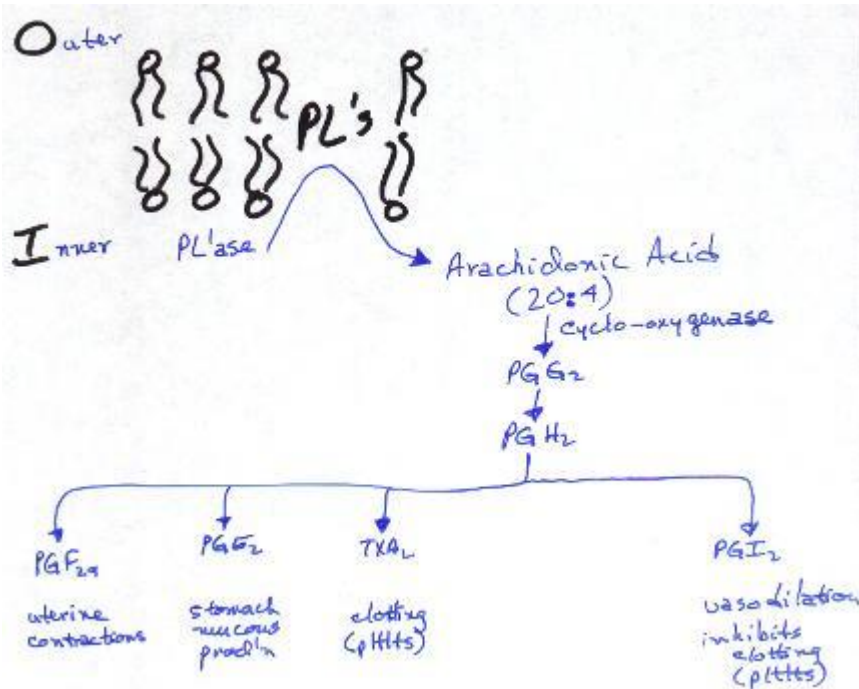 Outer
PL's
Inner
PL'ase
Arachidonic Acid
(20:4)
cyclo-oxygenase
PGG₂
PGH₂
PGF₂α
uterine
contractions
PGE₂
stomach
mucous
prod'n
TXA₂
clotting
(pltlts)
PGI₂
vasodilation
inhibits
clotting
(pltlts)